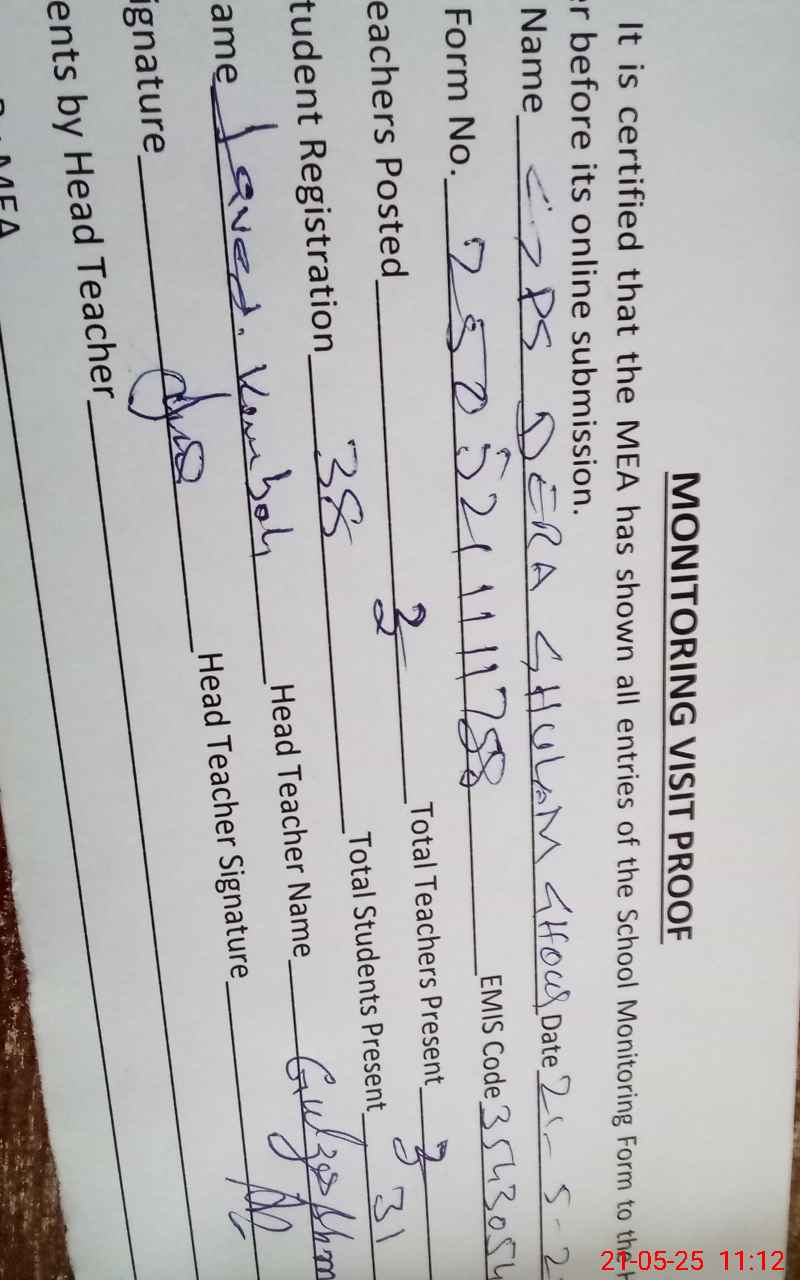 MONITORING VISIT PROOF
It is certified that the MEA has shown all entries of the School Monitoring Form to the H
er before its online submission.
Name GPS DERA GHULAM GHOUS Date 21-5-2
Form No. 25052111178 EMIS Code 3543054
eachers Posted 2 Total Teachers Present 2
tudent Registration 38 Total Students Present 31
ame Javed. Kamboh Head Teacher Name Gulzar Ahm
ignature Head Teacher Signature
ents by Head Teacher
MEA
21-05-25 11:12